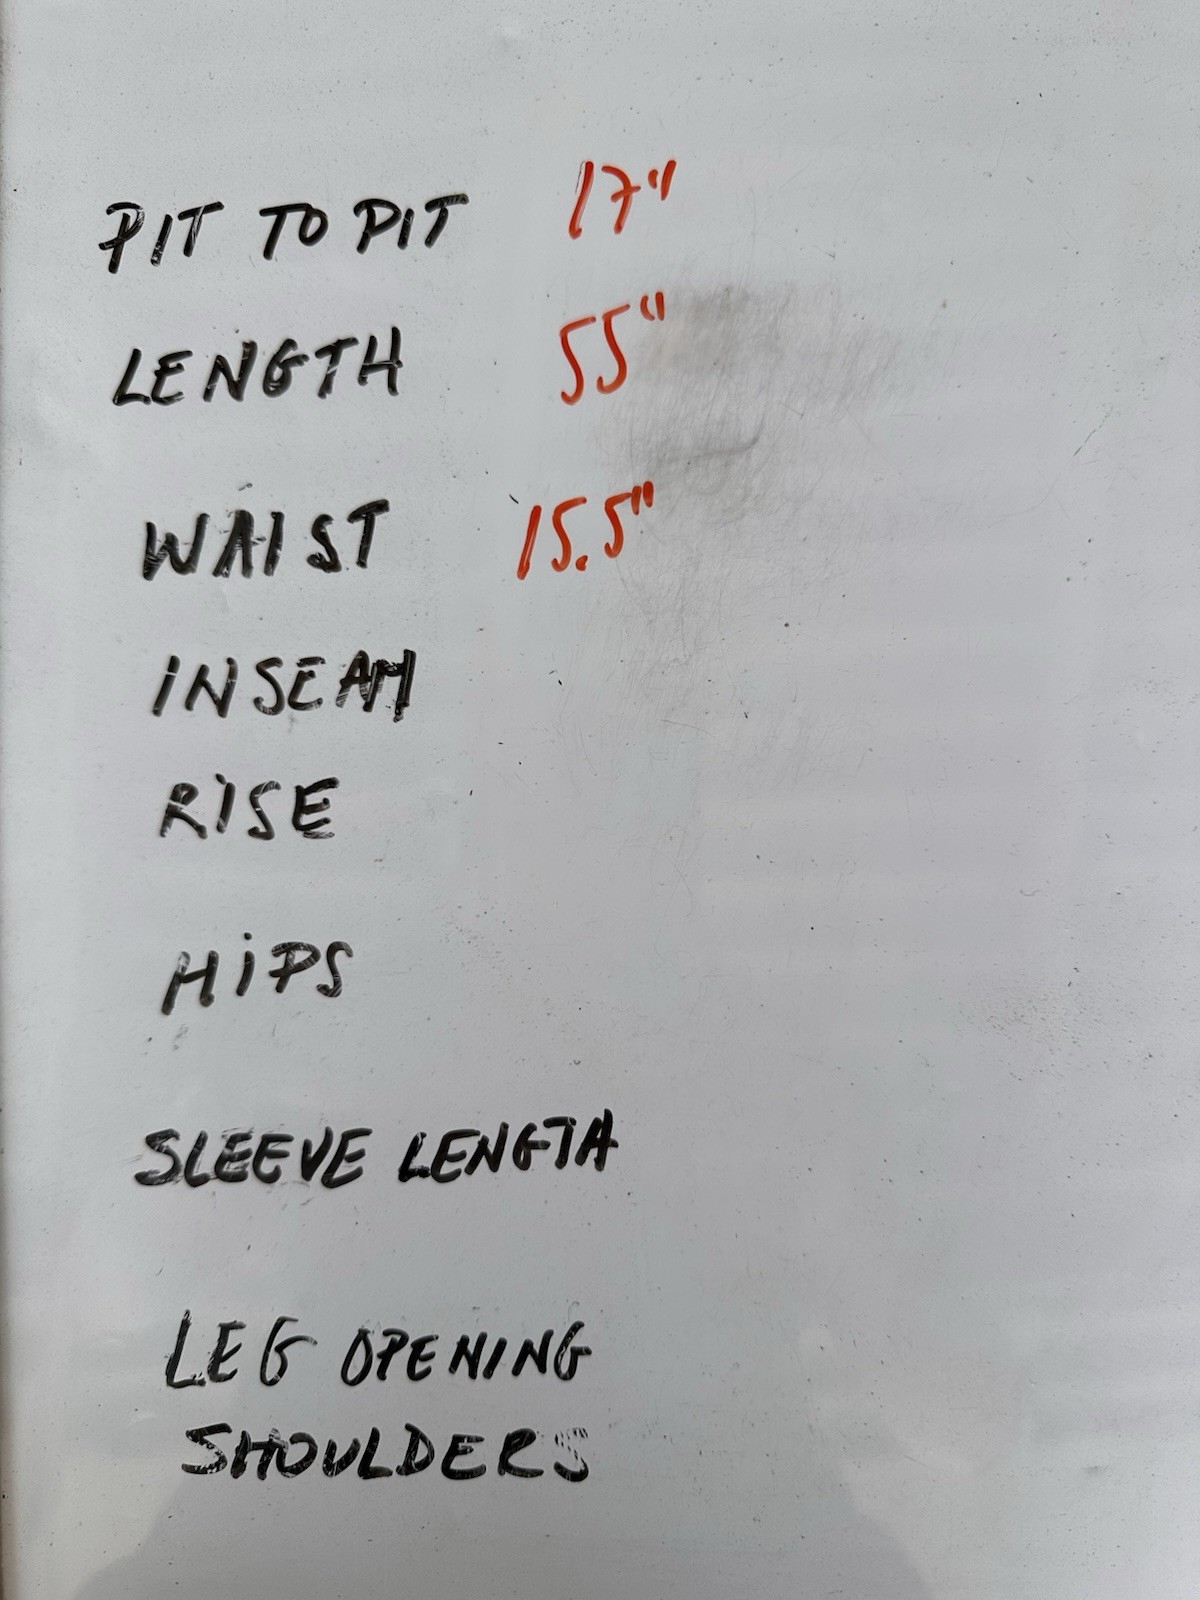 PIT TO PIT 17"
LENGTH 55"
WAIST 15.5"
INSEAM
RISE
HIPS
SLEEVE LENGTH
LEG OPENING
SHOULDERS